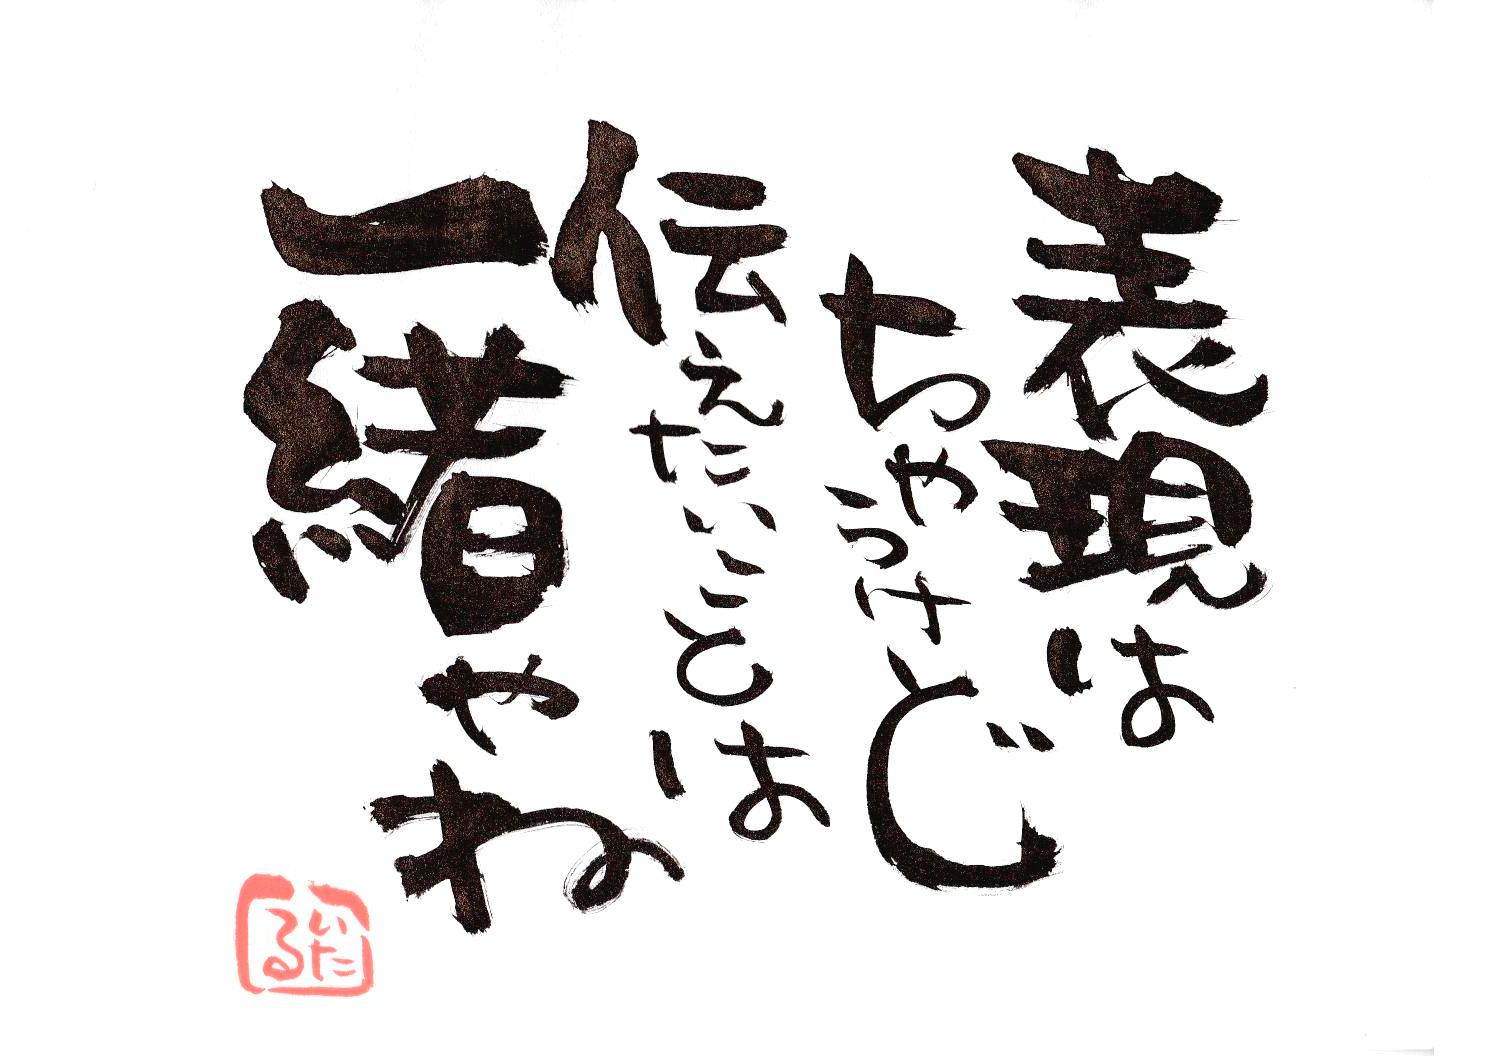 表現は
ちゃうけど
伝えたいことは
一緒やね
いたる